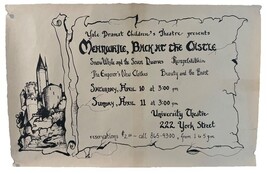 Yale Dramat Children's Theatre presents
Meanwhile, Back at the Castle
Snow White and the Seven Dwarves Rumpelstiltskin
The Emperor's New Clothes Beauty and the Beast
Saturday, April 10 at 3:00 pm
Sunday, April 11 at 3:00 pm
University Theatre
222 York Street
reservations call 865-4300, from 1 to 5 pm